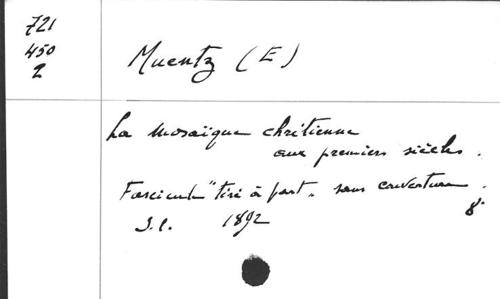 721
450
2
Muentz (E)
La mosaïque chrétienne
aux premiers siècles.
Fascicule "tiré à part" sans couverture.
8°
S.l. 1892